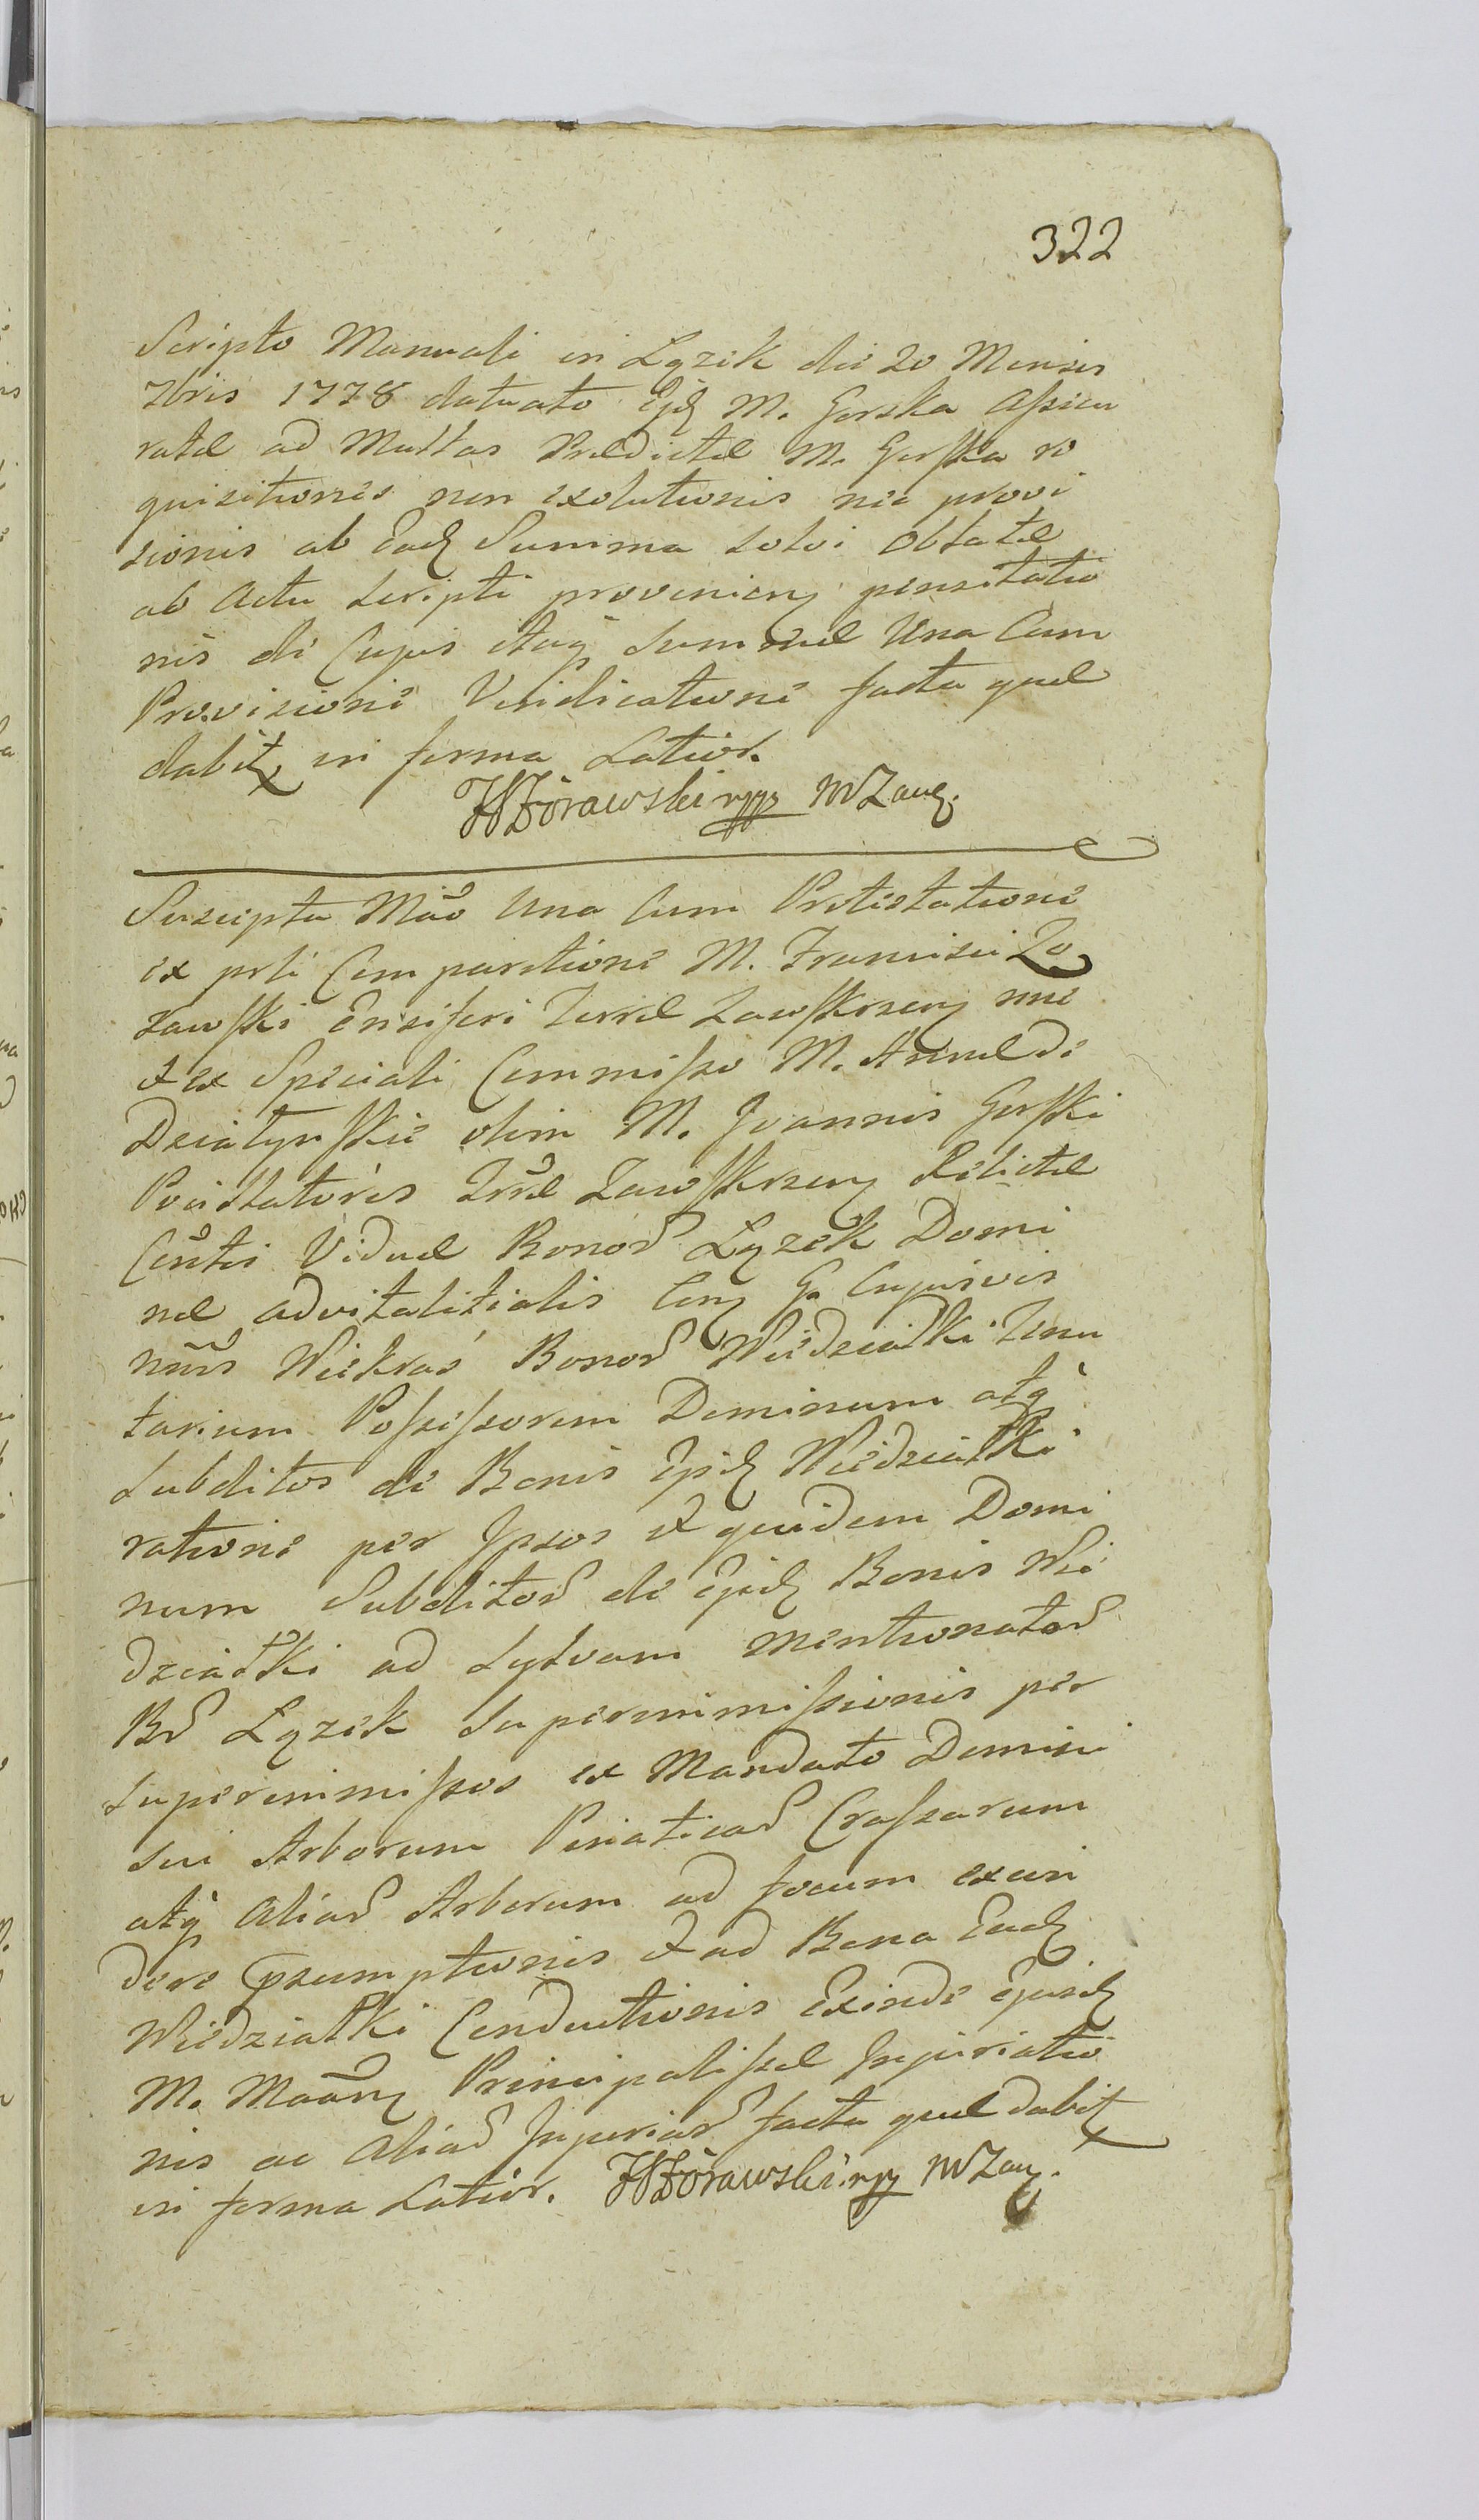 322
Scripto Manuali in Lązek die 20 Mensis
7bris 1778 datuato Ejd M. Gorska Assicu
ratæ ad Multas Prædictæ M. Gorska re
quisitiones non exolutionis nec provi
sionis ab Ead Summa solvi oblatæ
ab Actu Scripti provenien pensitatio
nis de Cujus itaq Summæ Una Cum
Provisione Vindicatione facta quæ
dabit in forma Latior.
HZórawski mpp MZawz.
Suscipta Mão Una Cum Protestatione
ex psti Comparitione M. Francisci Zo
rawski Ensiferi Terræ Zawskrzen nne
et ex Speciali Commisso M. Annæ de
Działynskie olim M. Joannis Gorski
Pocillatoris Trræ Zawskrzen Relictæ
Cnstis Viduæ Bonor Lązek Domi
næ advitalitialis Con G. Cujusvis
nnis Wiekraś Bonor Wiedziałki Tenu
tarium Possessorem Dominum atq
Subditos de Bonis Ejsd Wiedziałki
ratione per Ipsos et quidem Domi
num Subditor de Ejsd Bonis Wie
działki ad Sylvam mentionator
Br Lązek Superimmissionis per
Superimmissos ex Mandato Domini
sui Arborum Piniaticar Crassarum
atq Aliar Arborum ad focum exciri
dere Præsumptionis et ad Bona Ead
Wiedziałki Conductionis Exinde Ejusd
M. Maãn Principalissæ Injuriatio
nis ac Aliar Injuriar facta quæ dabit
in forma Latior. HZórawski mpp MZawz.